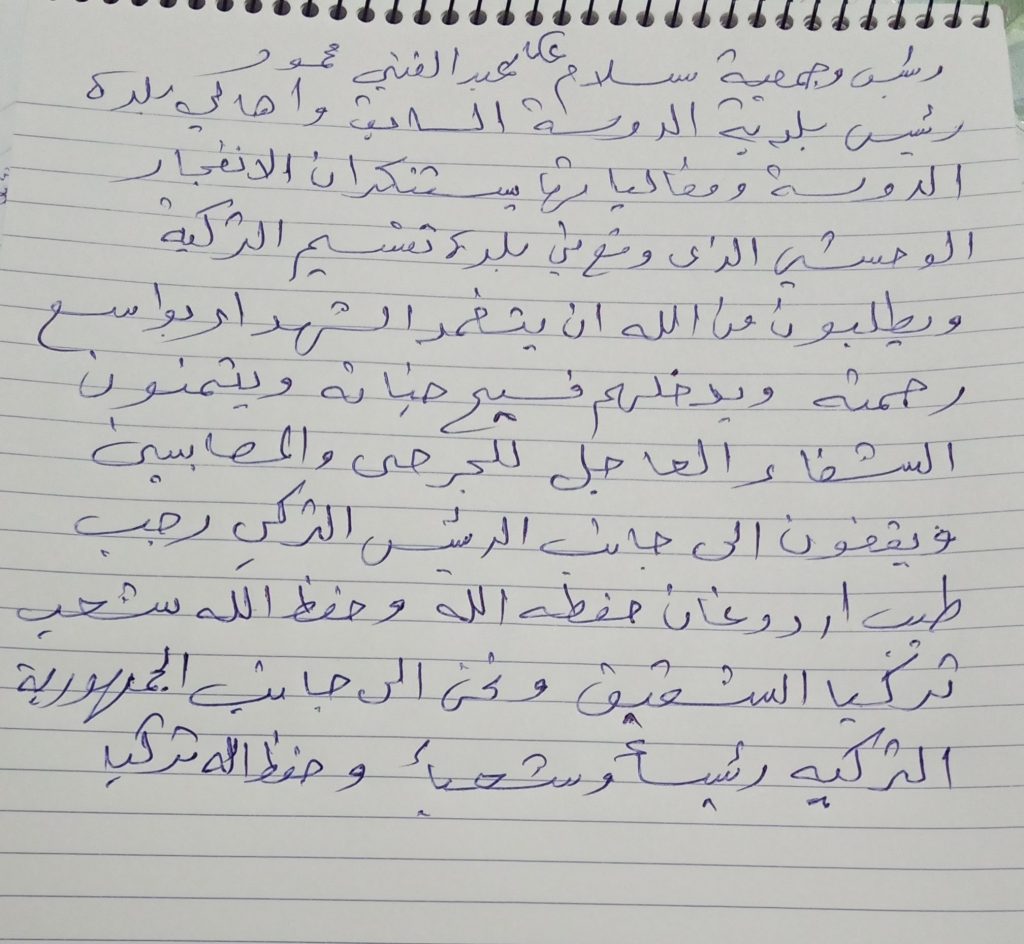 رئيس وجمعية سلام عكا عبد الغني محمود
رئيس بلدية الدوسة السابق واهالي بلدة
الدوسة وفعالياتها يستنكران الانفجار
الوحشي الذى وقع في بلدة تقسيم التركية
ويطلبون من الله ان يتغمد الشهداء بواسع
رحمته ويدخلهم فسيح جنانه ويتمنون
الشفاء العاجل للجرحى والمصابين
ويقفون الى جانب الرئيس التركي رجب
طيب اردوغان حفظه الله وحفظ الله شعب
تركيا الشقيق ونحن الى جانب الجمهورية
التركيه رئيسأ وشعبأ وحفظ الله تركيا